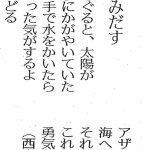 アザ
海へ
それ
これ
勇気
（西
みだす
ぐると、太陽が
にかがやいていた
手で水をかいたら
った気がするよ
どる